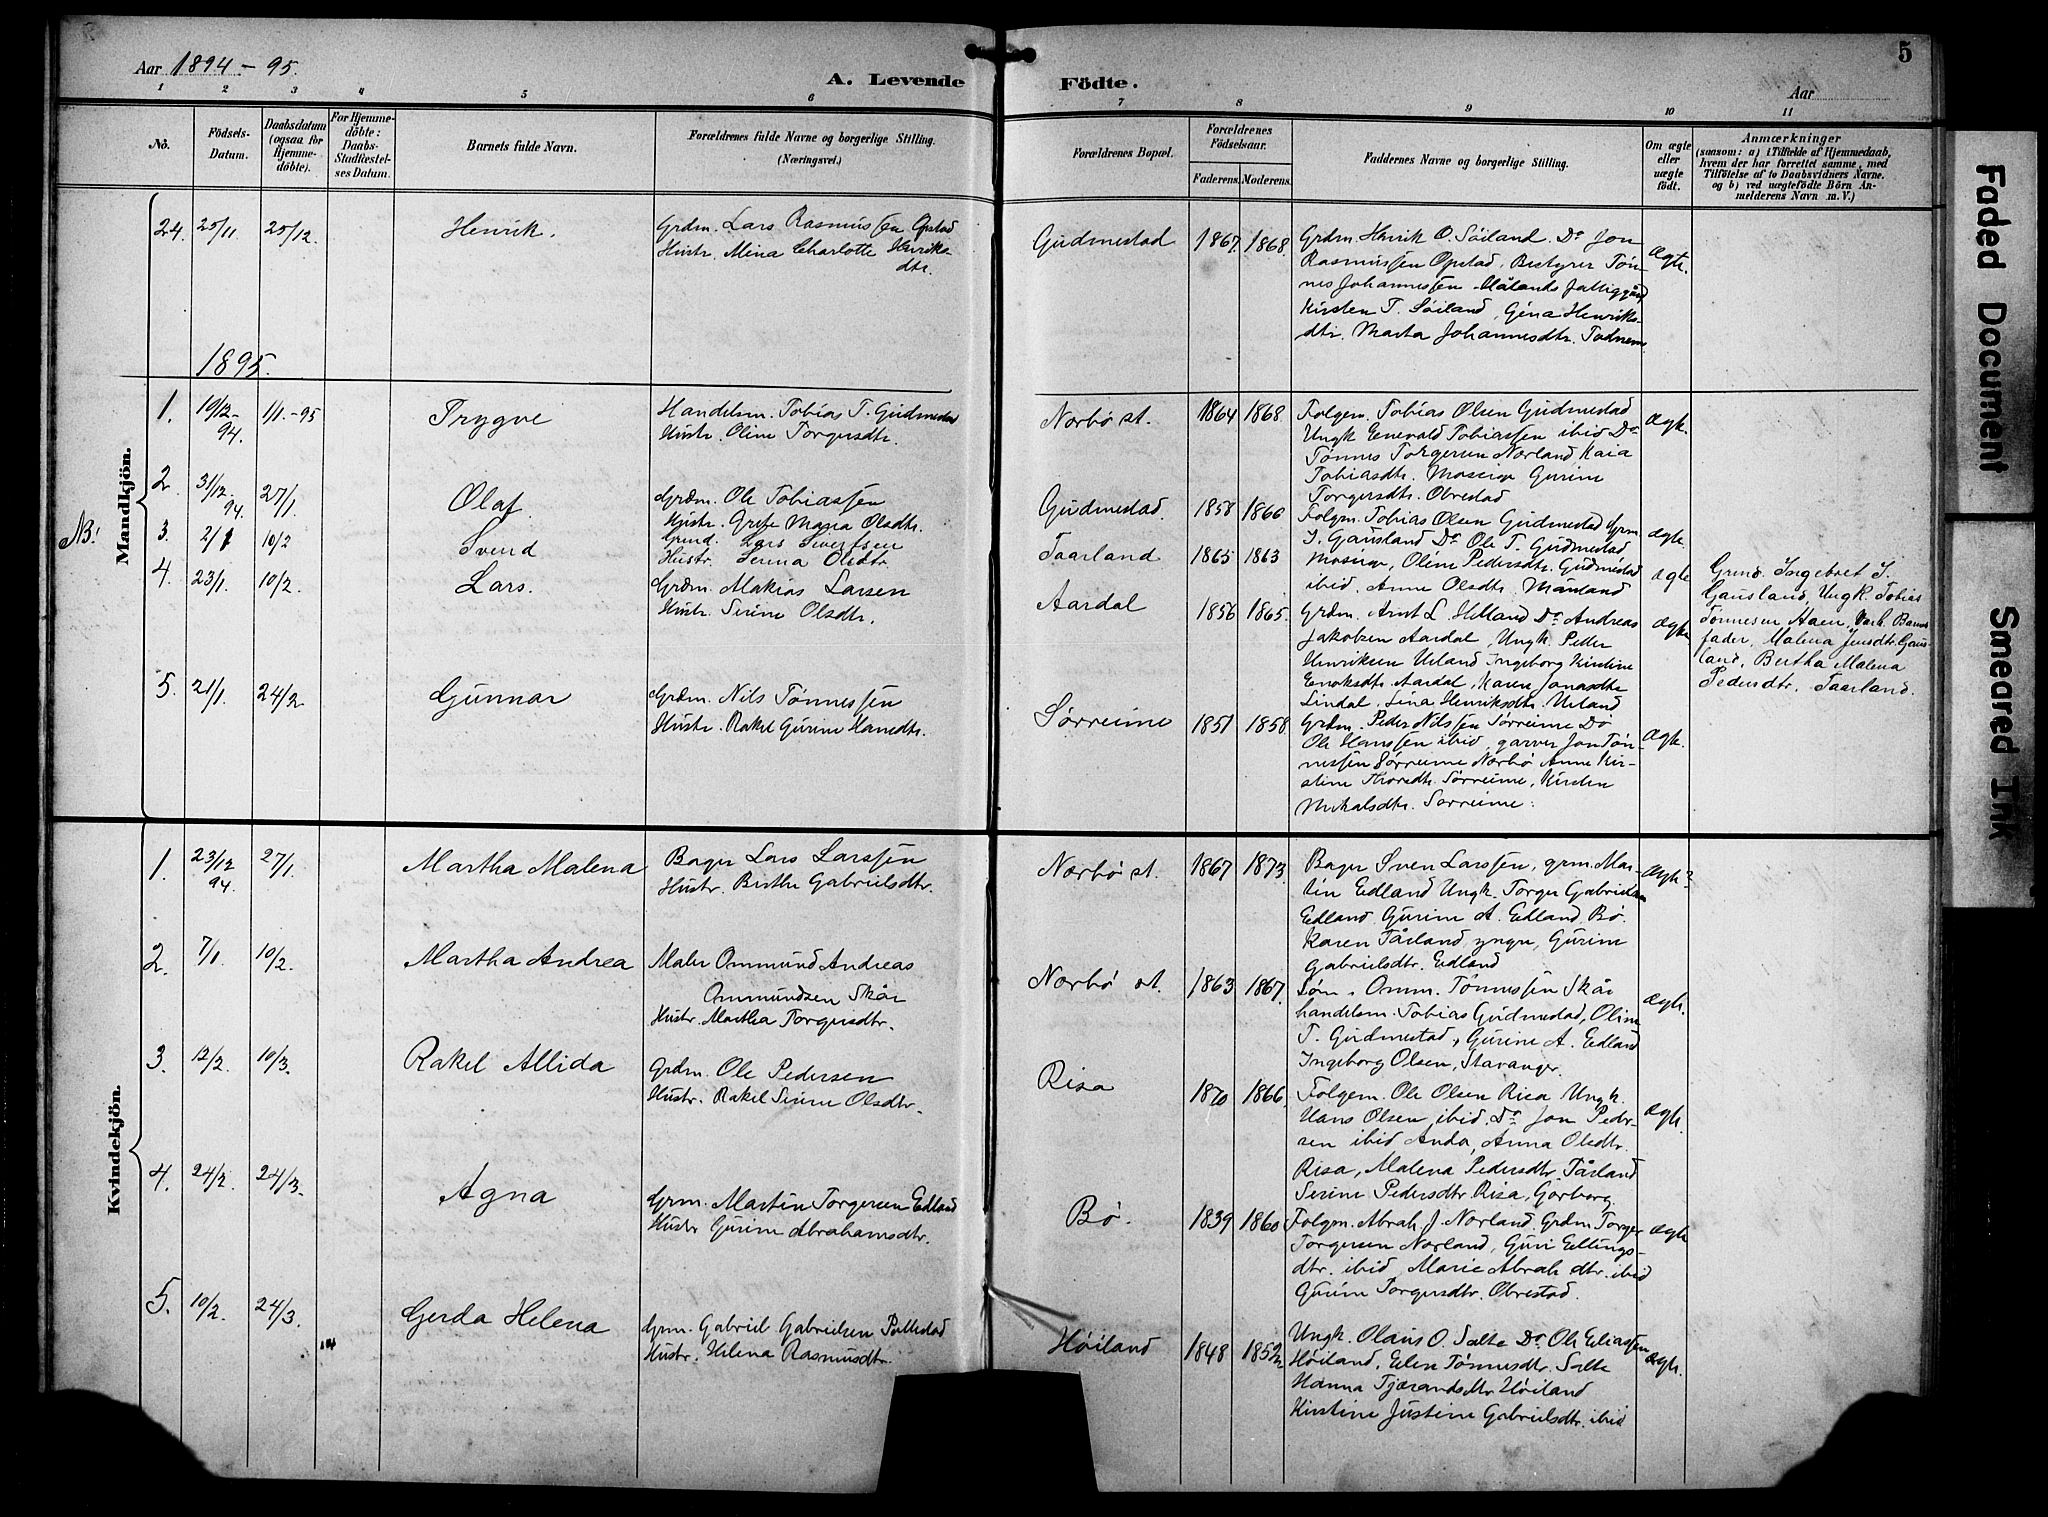 Aar 1894-95.
A. Levende Födte.
5
Aar
1 2 3 4 5 6 7 8 9 10 11
Nô.
Födsels-
Datum.
Daabsdatum
(ogsaa for
Hjemme-
döbte).
For Hjemme-
döbte:
Daabs-
Stadfæstel-
ses Datum.
Barnets fulde Navn.
Forældrenes fulde Navne og borgerlige Stilling.
(Næringsvei.)
Forældrenes Bopæl.
Forældrenes
Födselsaar.
Faderens. Moderens.
Faddernes Navne og borgerlige Stilling.
Om ægte
eller
uægte
födt.
Anmærkninger
(saasom: a) i Tilfælde af Hjemmedaab,
hvem der har forrettet samme, med
Tilföielse af to Daabsvidners Navne.
og b) ved uægtefödte Börn An-
melderens Navn m. V.)
Mandkjön.
24. 25/11. 25/12. Henrik.
Grdm. Lars Rasmussen Opstad
Hustr. Mina Charlotte Henriks-
dtr.
Gudmestad 1867. 1868.
Grdm. Henrik O. Söiland. Do Jon
Rasmussen Opstad, Bestyrer Tøn-
nes Johannessen Hålands fattiggård
Kirsten T. Søiland, Gina Henriks-
dtr. Marta Johannesdtr. Todnem.
ægte.
1895.
1. 19/12-94. 1/1.-95 Trygve
Handelsm. Tobias T. Gudmestad
Hustr. Oline Torgersdtr.
Nærbø st. 1864 1868.
Folgem. Tobias Olsen Gudmestad
Ungk Enevald Tobiassen ibid Do
Tønnes Torgersen Norland Kaia
Tobiasdtr. Mossige Gurine
Torgersdtr. Obrestad
ægte.
2. 31/12-94. 27/1. Olaf.
Grdm. Ole Tobiassen
Hustr. Grete Maria Olsdtr.
Gudmestad. 1858 1860
Folgm. Tobias Olsen Gudmestad Grm
I. Gausland Do Ole T. Gudmestad
Mossige, Oline Pedersdtr. Gudmestad
ibid. Anne Olsdtr. Månland
ægte.
NB!
3. 2/1 10/2 Svend
Grmd. Lars Sivertsen
Hustr. Serina Olsdtr
Taarland 1865 1863
ægte
Grmd. Ingebret I.
Gausland, Ungk. Tobias
Tønnesen Haen, Barnets
fader, Malena Jensdtr. Gaus-
land, Bertha Malena
Pedersdtr. Taarland.
4. 23/1. 10/2. Lars.
Grdm. Makias Larsen
Hustr. Serine Olsdtr.
Aardal 1856 1865.
Grdm. Arnt L. Helland Do Andreas
Jakobsen Aardal, Ungk. Peder
Henriksen Ueland Ingeborg Kirstine
Enoksdtr. Aardal, Karen Jonasdtr
Lindal, Lina Henriksdtr. Ueland
ægte
5. 21/1. 24/2. Gunnar
Grdm. Nils Tønnessen
Hustr. Rakel Gurine Hansdtr.
Sørreime 1851 1858.
Grdm. Peder Nilssen Sørreime Do
Ole Hanssen ibid, garver Jon Tøn-
nessen Sørreime Nærbø Anne Kir-
stine Thoredtr. Sørreime, Kirsten
Mikalsdtr. Sørreime.
ægte.
Kvindekjön.
1. 23/12 94. 27/1. Martha Malena
Bager Lars Larssen
Hustr. Berthe Gabrielsdtr.
Nærbø st. 1867 1873.
Bager Sven Larssen, grm. Mar-
tin Edland Ungk. Torger Gabrielsen
Edland Gurine A. Edland, Bø.
Karen Tårland, yngre, Gurine
Gabrielsdtr. Edland
ægte?
2. 7/1. 10/2. Martha Andrea
Maler Ommund Andreas
Ommundsen Skår
Hustr. Martha Torgersdtr.
Nærbø st. 1863 1867.
Løm. Omm. Tönnessen Skår
handelsm. Tobias Gudmestad, Oline
T. Gudmestad, Gurine A. Edland
Ingeborg Olsen, Stavanger.
ægte.
3. 12/2. 10/3. Rakel Allida
Grdm. Ole Pedersen
Hustr. Rakel Serine Olsdtr.
Risa 1870 1866.
Folgem. Ole Olsen Risa Ungk.
Hans Olsen ibid. Do Jon Peder-
sen ibid Anda, Anna Olsdtr.
Risa, Malena Pedersdtr. Tårland
Serine Pedersdtr Risa, Görborg
ægte.
4. 24/2. 24/3. Agna
Grm. Martin Torgersen Edland
Hustr Gurine Abrahamsdtr.
Bø. 1839 1860
Folgm. Abrah. J. Norland. Grdm Torger
Torgersen Norland, Guri Ellings-
dtr. ibid, Marie Abrah.dtr. ibid
Gurine Torgersdtr. Obrestad.
ægte
5. 10/2. 24/3. Gerda Helena
Grm. Gabriel Gabrielsen Pollestad
Hustr. Helena Rasmusdtr.
Høiland 1848 1852
Ungk. Olaus O. Salte Do Ole Eliassen
Høiland, Elen Tönnesdtr. Salte
Hanna Tjærandsdtr Høiland
Kirstine Justine Gabrielsdtr. ibid
ægte.
Faded Document
Smeared Ink